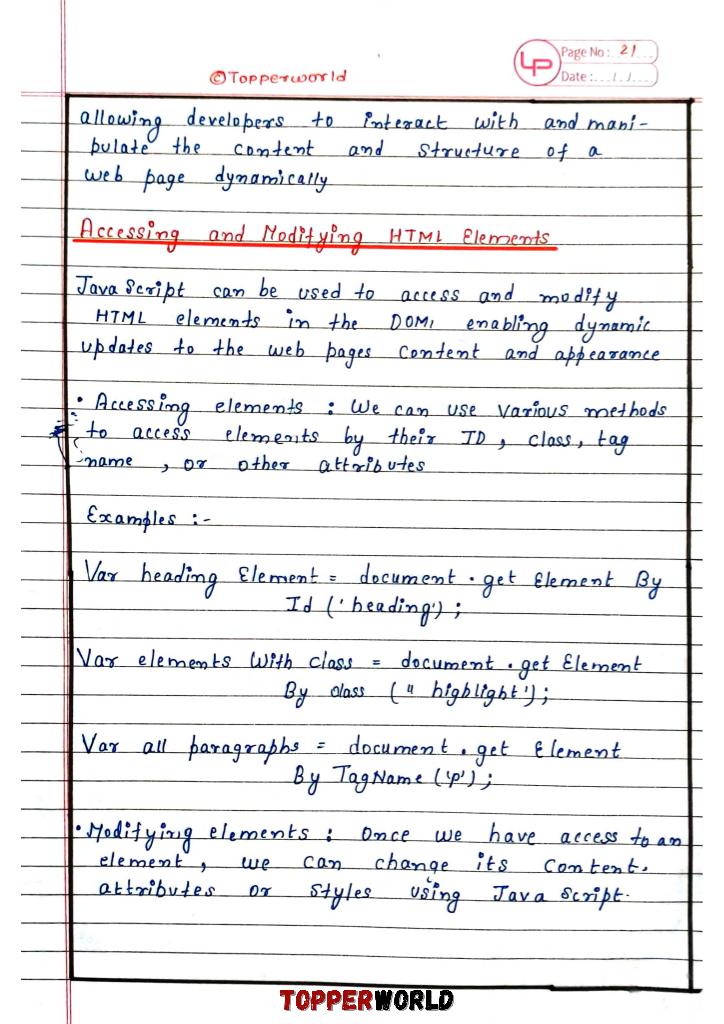 ©Topperworld
LP
Page No: 21
Date:
allowing developers to interact with and mani-
pulate the content and structure of a
web page dynamically
Accessing and Modifying HTML Elements
Java Script can be used to access and modify
HTML elements in the DOM, enabling dynamic
updates to the web pages content and appearance
• Accessing elements : We can use various methods
to access elements by their ID, class, tag
name, or other attributes
Examples :-
Var heading Element = document . get Element By
Id ('heading');
Var elements With class = document . get Element
By class (" highlight');
Var all paragraphs = document . get Element
By TagName ('p');
• Modifying elements : Once we have access to an
element, we can change its content.
attributes or styles using Java Script.
TOPPERWORLD